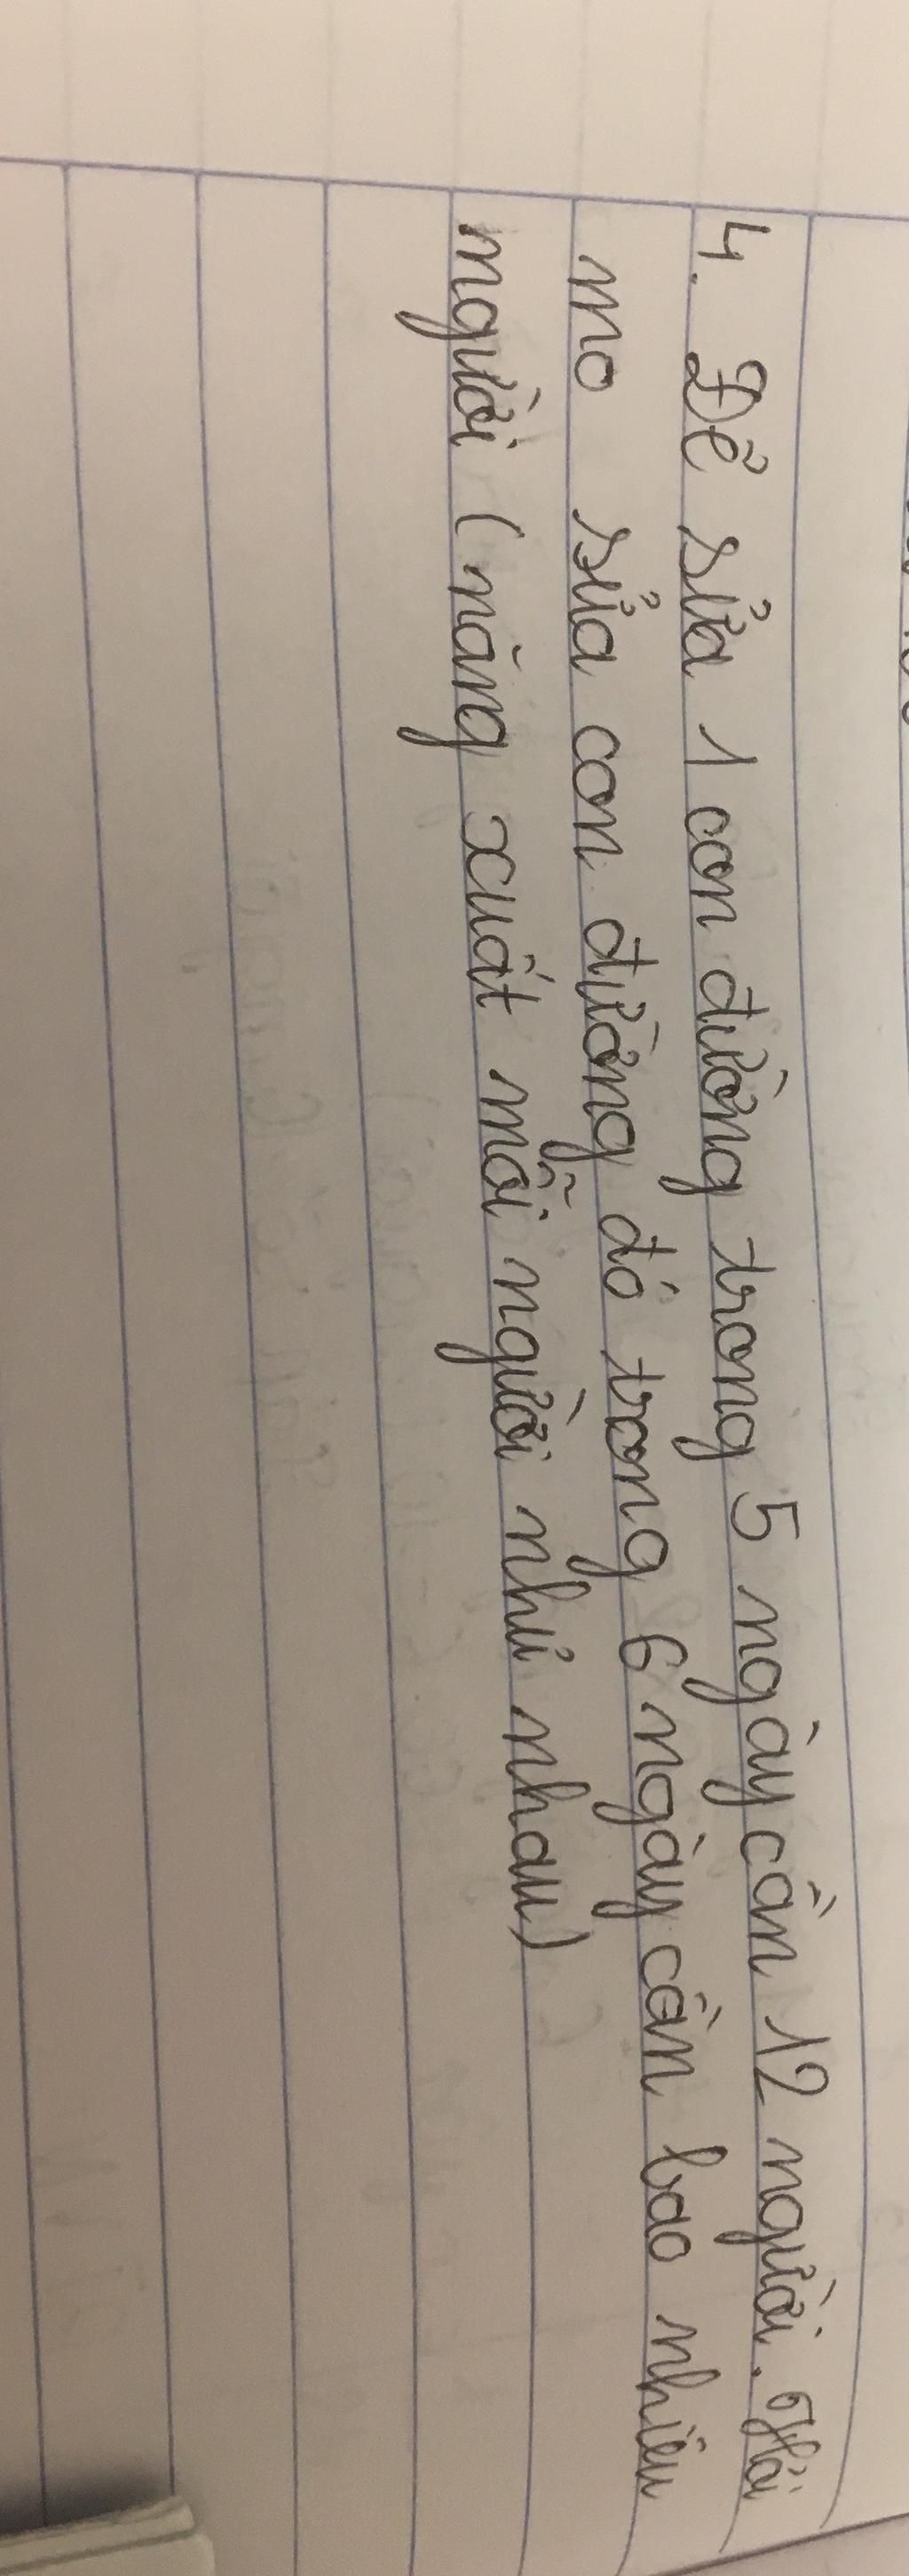 4. Để sửa 1 con đường trong 5 ngày cần 12 người. Hỏi
mo sửa con đường đó trong 6 ngày cần bao nhiêu
người (năng xuất mỗi người như nhau)